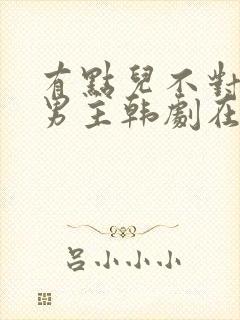 有點兒不對
男主韩劇在
呂小小小